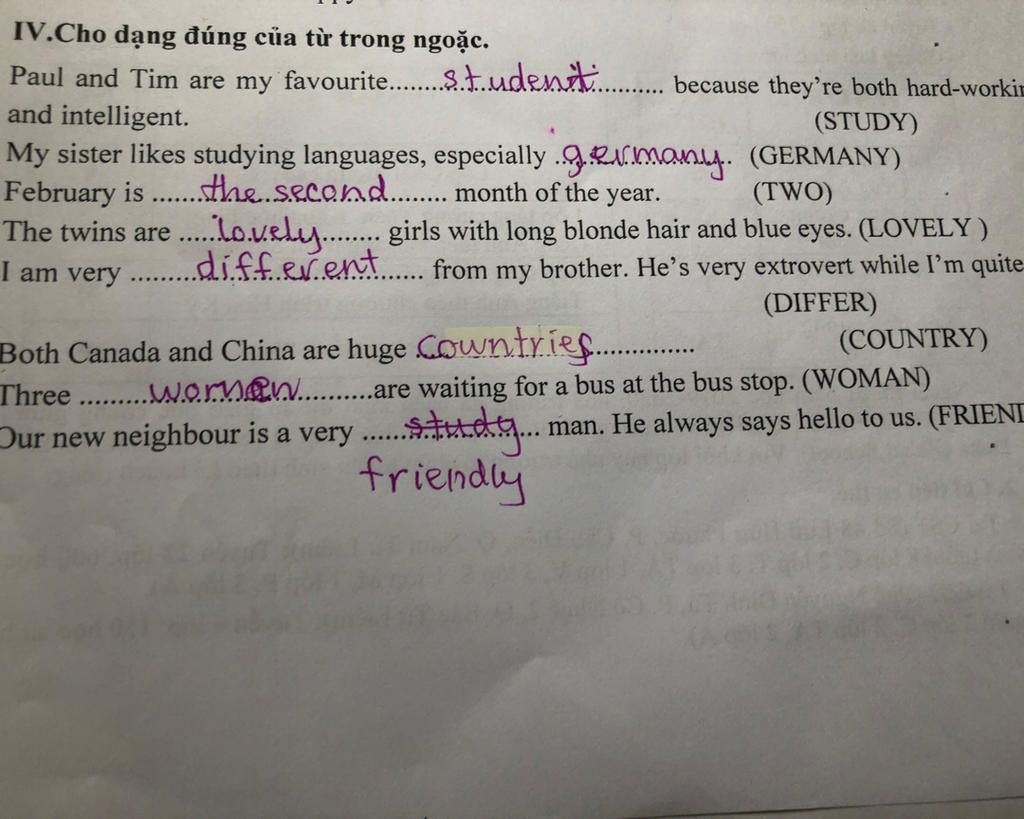 IV.Cho dạng đúng của từ trong ngoặc.
Paul and Tim are my favourite........student.......... because they're both hard-workin
and intelligent. (STUDY)
My sister likes studying languages, especially .germany. (GERMANY)
February is .......the second........ month of the year. (TWO)
The twins are .....lovely........ girls with long blonde hair and blue eyes. (LOVELY )
I am very .........different...... from my brother. He's very extrovert while I'm quite
(DIFFER)
Both Canada and China are huge .countries............... (COUNTRY)
Three .........women..........are waiting for a bus at the bus stop. (WOMAN)
Our new neighbour is a very ......study... man. He always says hello to us. (FRIEND
friendly